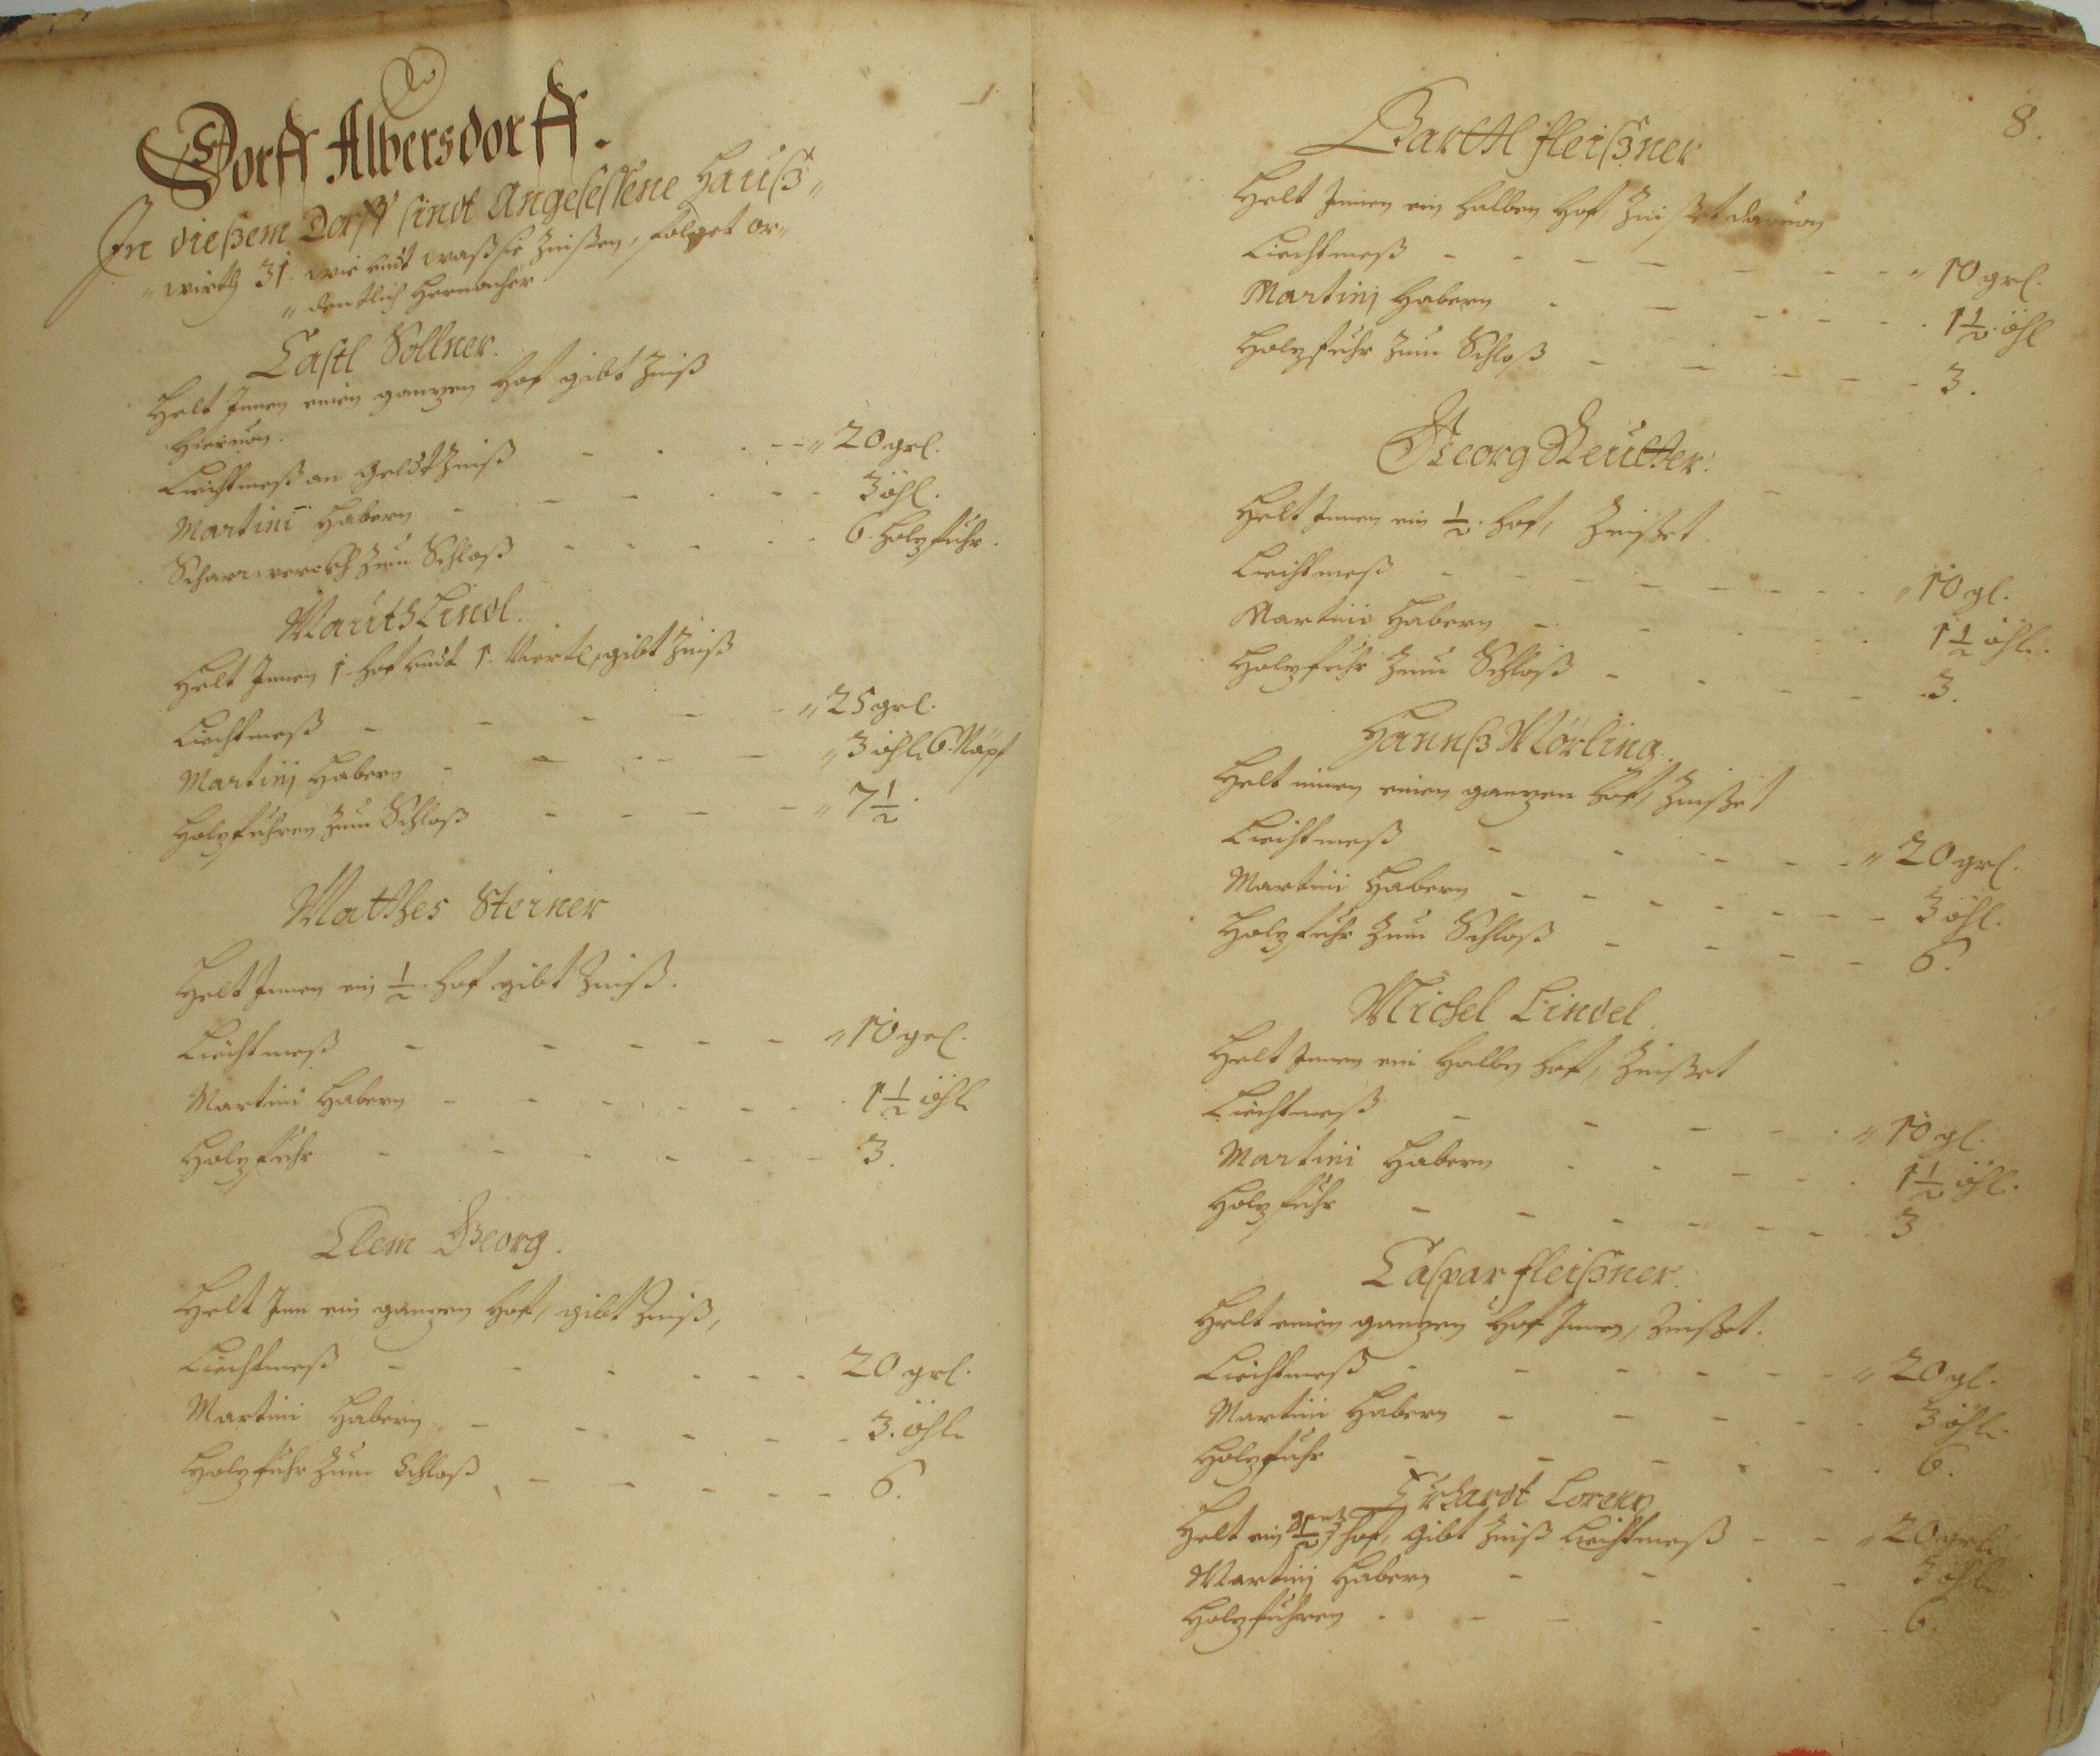 Dorff Albersdorff.
In dießem Dorff sindt Angesessene Hauß„
„wirth 31. wie undt waß sie Zinßen, folget or„
„dentlich hernacher
Castl Söllner.
Helt Innen einen ganzen Hof gibt Zinß
hieruon.
Liechtmeß an Geldt Zinß - - - - „ 20 grl.
Martini Habern - - - - 3 öhl.
Scharwerckh zum Schloß - - - - 6. Holzfuhr.
Mauth Lindl.
Helt Innen 1. Hof undt 1. Viertl, gibt Zinß
Liechtmeß - - - - „ 25 grl.
Martinj Habern - - - - „ 3 öhl. 6. Näpf
Holzfuhren zum Schloß - - - - „ 7 1/2.
Matthes Steiner
Helt Innen ein 1/2. Hof gibt Zinß.
Liechtmeß - - - - „ 10 grl.
Martini Habern - - - - 1 1/2 öhl.
Holzfuhr - - - - 3.
Clem Georg.
Helt Inn ein ganzen Hof, gibt Zinß,
Liechtmeß - - - - 20 grl.
Martini Habern - - - - 3. öhl.
Holzfuhr zum Schloß - - - - 6.
8.
Barthl fleißner
Helt Innen ein halben Hof, Zinßet daruon
Liechtmeß - - - - „ 10 grl.
Martinj Habern - - - - 1 1/2 öhl
Holzfuhr zum Schloß - - - - 3.
Georg Reutter.
Helt Innen ein 1/2. Hof, Zinßet
Liechtmeß - - - - „ 10 gl.
Martini Habern - - - - 1 1/2 öhl.
Holzfuhr zum Schloß - - - - 3.
Hannß Mörling.
Helt innen einen ganzen Hof, Zinßet
Liechtmeß - - - - „ 20 grl.
Martini Habern - - - - 3 öhl.
Holzfuhr zum Schloß - - - - 6.
Michel Lindel
Helt Innen ein halben Hof, Zinßet
Liechtmeß - - - - „ 10 gl.
Martini Habern - - - - 1 1/2 öhl.
Holzfuhr - - - - 3
Caspar fleißner.
Helt einen ganzen Hof Innen, Zinßet.
Liechtmeß - - - - „ 20 gl.
Martini Habern - - - - 3 öhl.
Holzfuhr - - - - 6.
Erhardt Lorenz
Helt ein ganz 1/2 Hof, gibt Zinß Liechtmeß - - „ 20 grl.
Martinj Habern - - - - 3 öhl.
Holzfuhren - - - - 6.